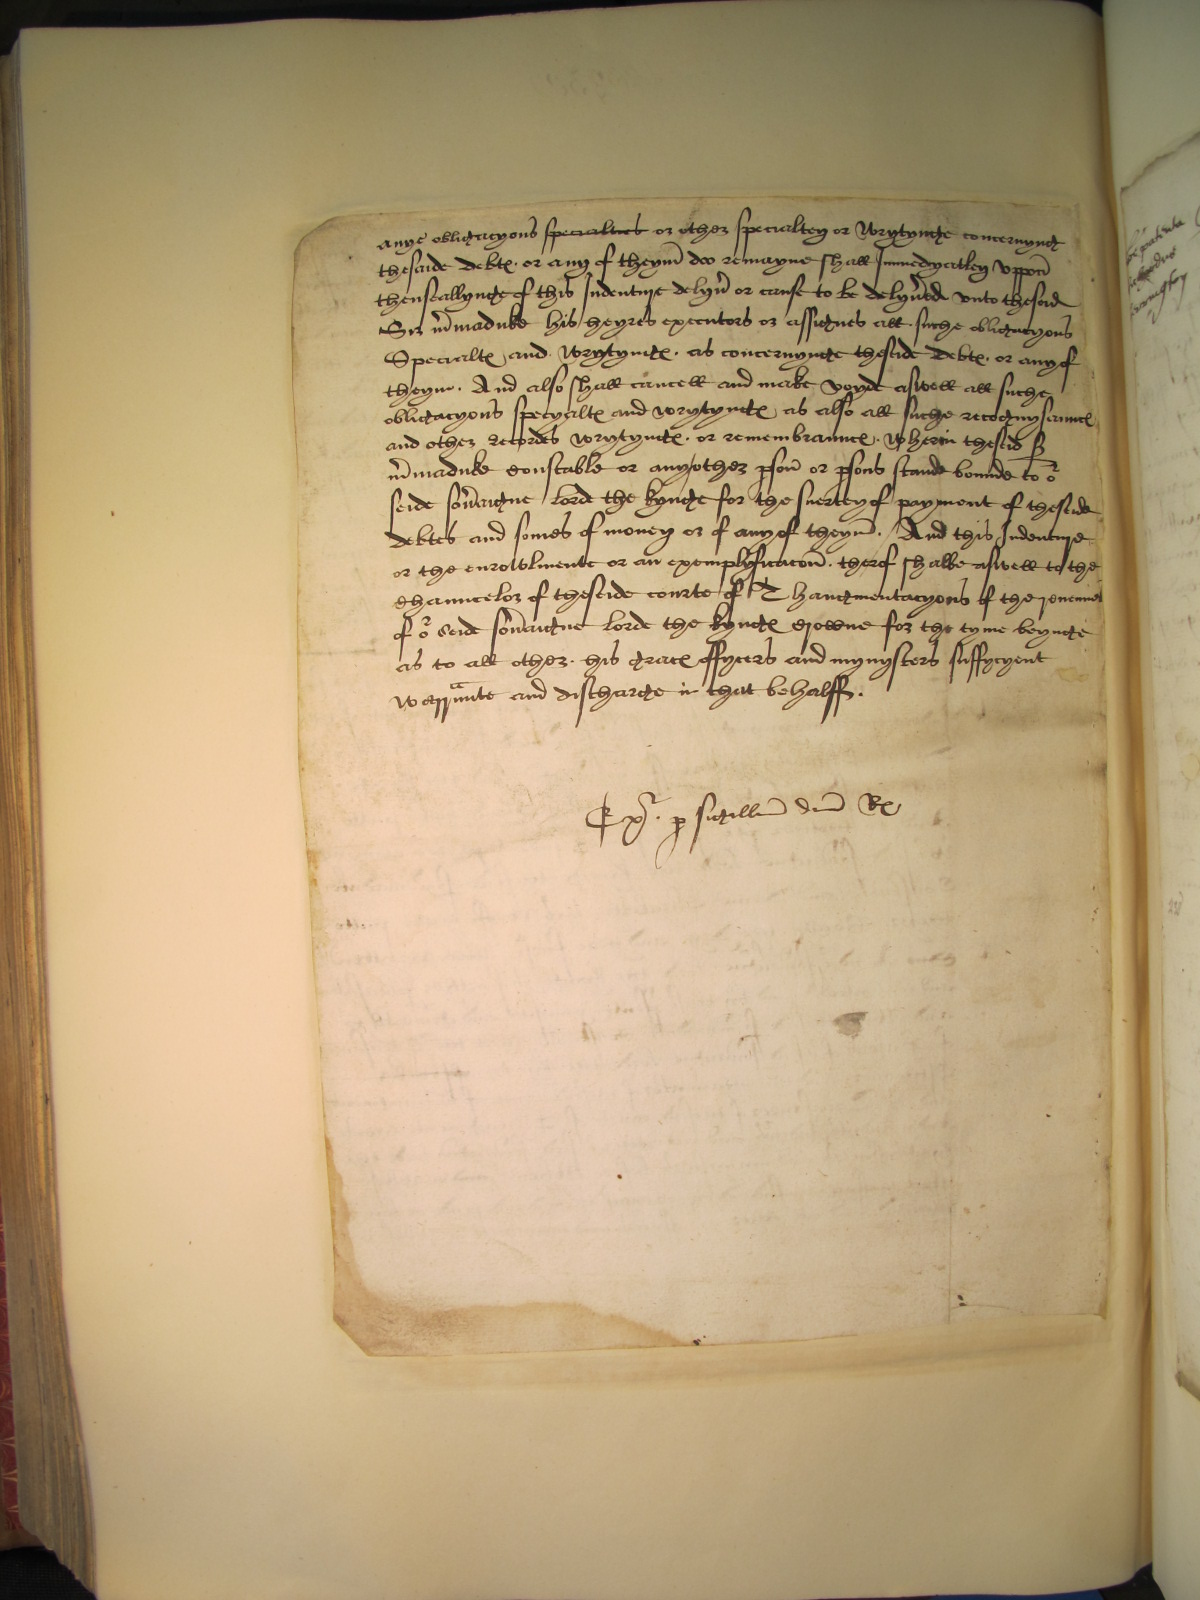 anye obligacyons specialties or other specialtey or wrytynge concernyng
thesaide debtꝭ or any of theym̄ doo remayne shall Immedyatley vppon̄
thenseallynge of this Indenture delyu̾ or cause to be delyu̾ed vnto thesaid
Sir m̄maduke his heyres executors or assignes all suche obligacyons
Specialtꝭ and wrytyngꝭ as concernynge theseide debtꝭ or any of
theym. And also shall cancell and make voyde aswell all suche
obligacyons specyaltꝭ and wrytyngꝭ as also all suche recognysauncꝭ
and other recordes wrytyngꝭ or remembrauncꝭ wherin theseid S
m̄maduke constable or any other ꝑson̄ or ꝑsons stande bounde to oʳ
seide sou̾aigne lorde the kynge for the suertey of payment of theseide
debtes and somes of money or of any of theym̄. And this Indenture
or the enrowlmente or an exemplyficacon̄ therof shalbe aswell to the
Chaunceloʳ of theseide courte of Thaugmentacyons of the revenues
of oʳ seide sou̾aigne lorde the kyngꝭ crowne for the tyme beynge
as to all other his gracꝭ offycers and mynysters suffycyent
warraunte and discharge in that behalff.
Exʳ ꝑ sigillum̄ dn̄i Rꝭ